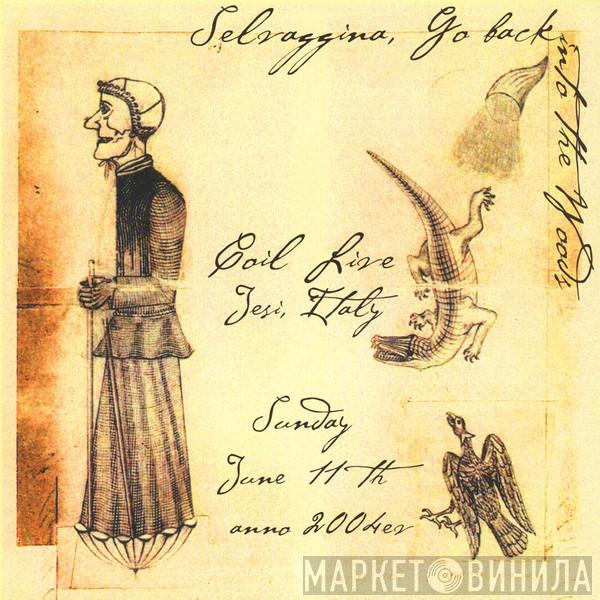 Selvaggina, Go back
into the Woods
Coil Live
Jesi, Italy
Sunday
June 11th
anno 2004ev
МАРКЕТ ВИНИЛА